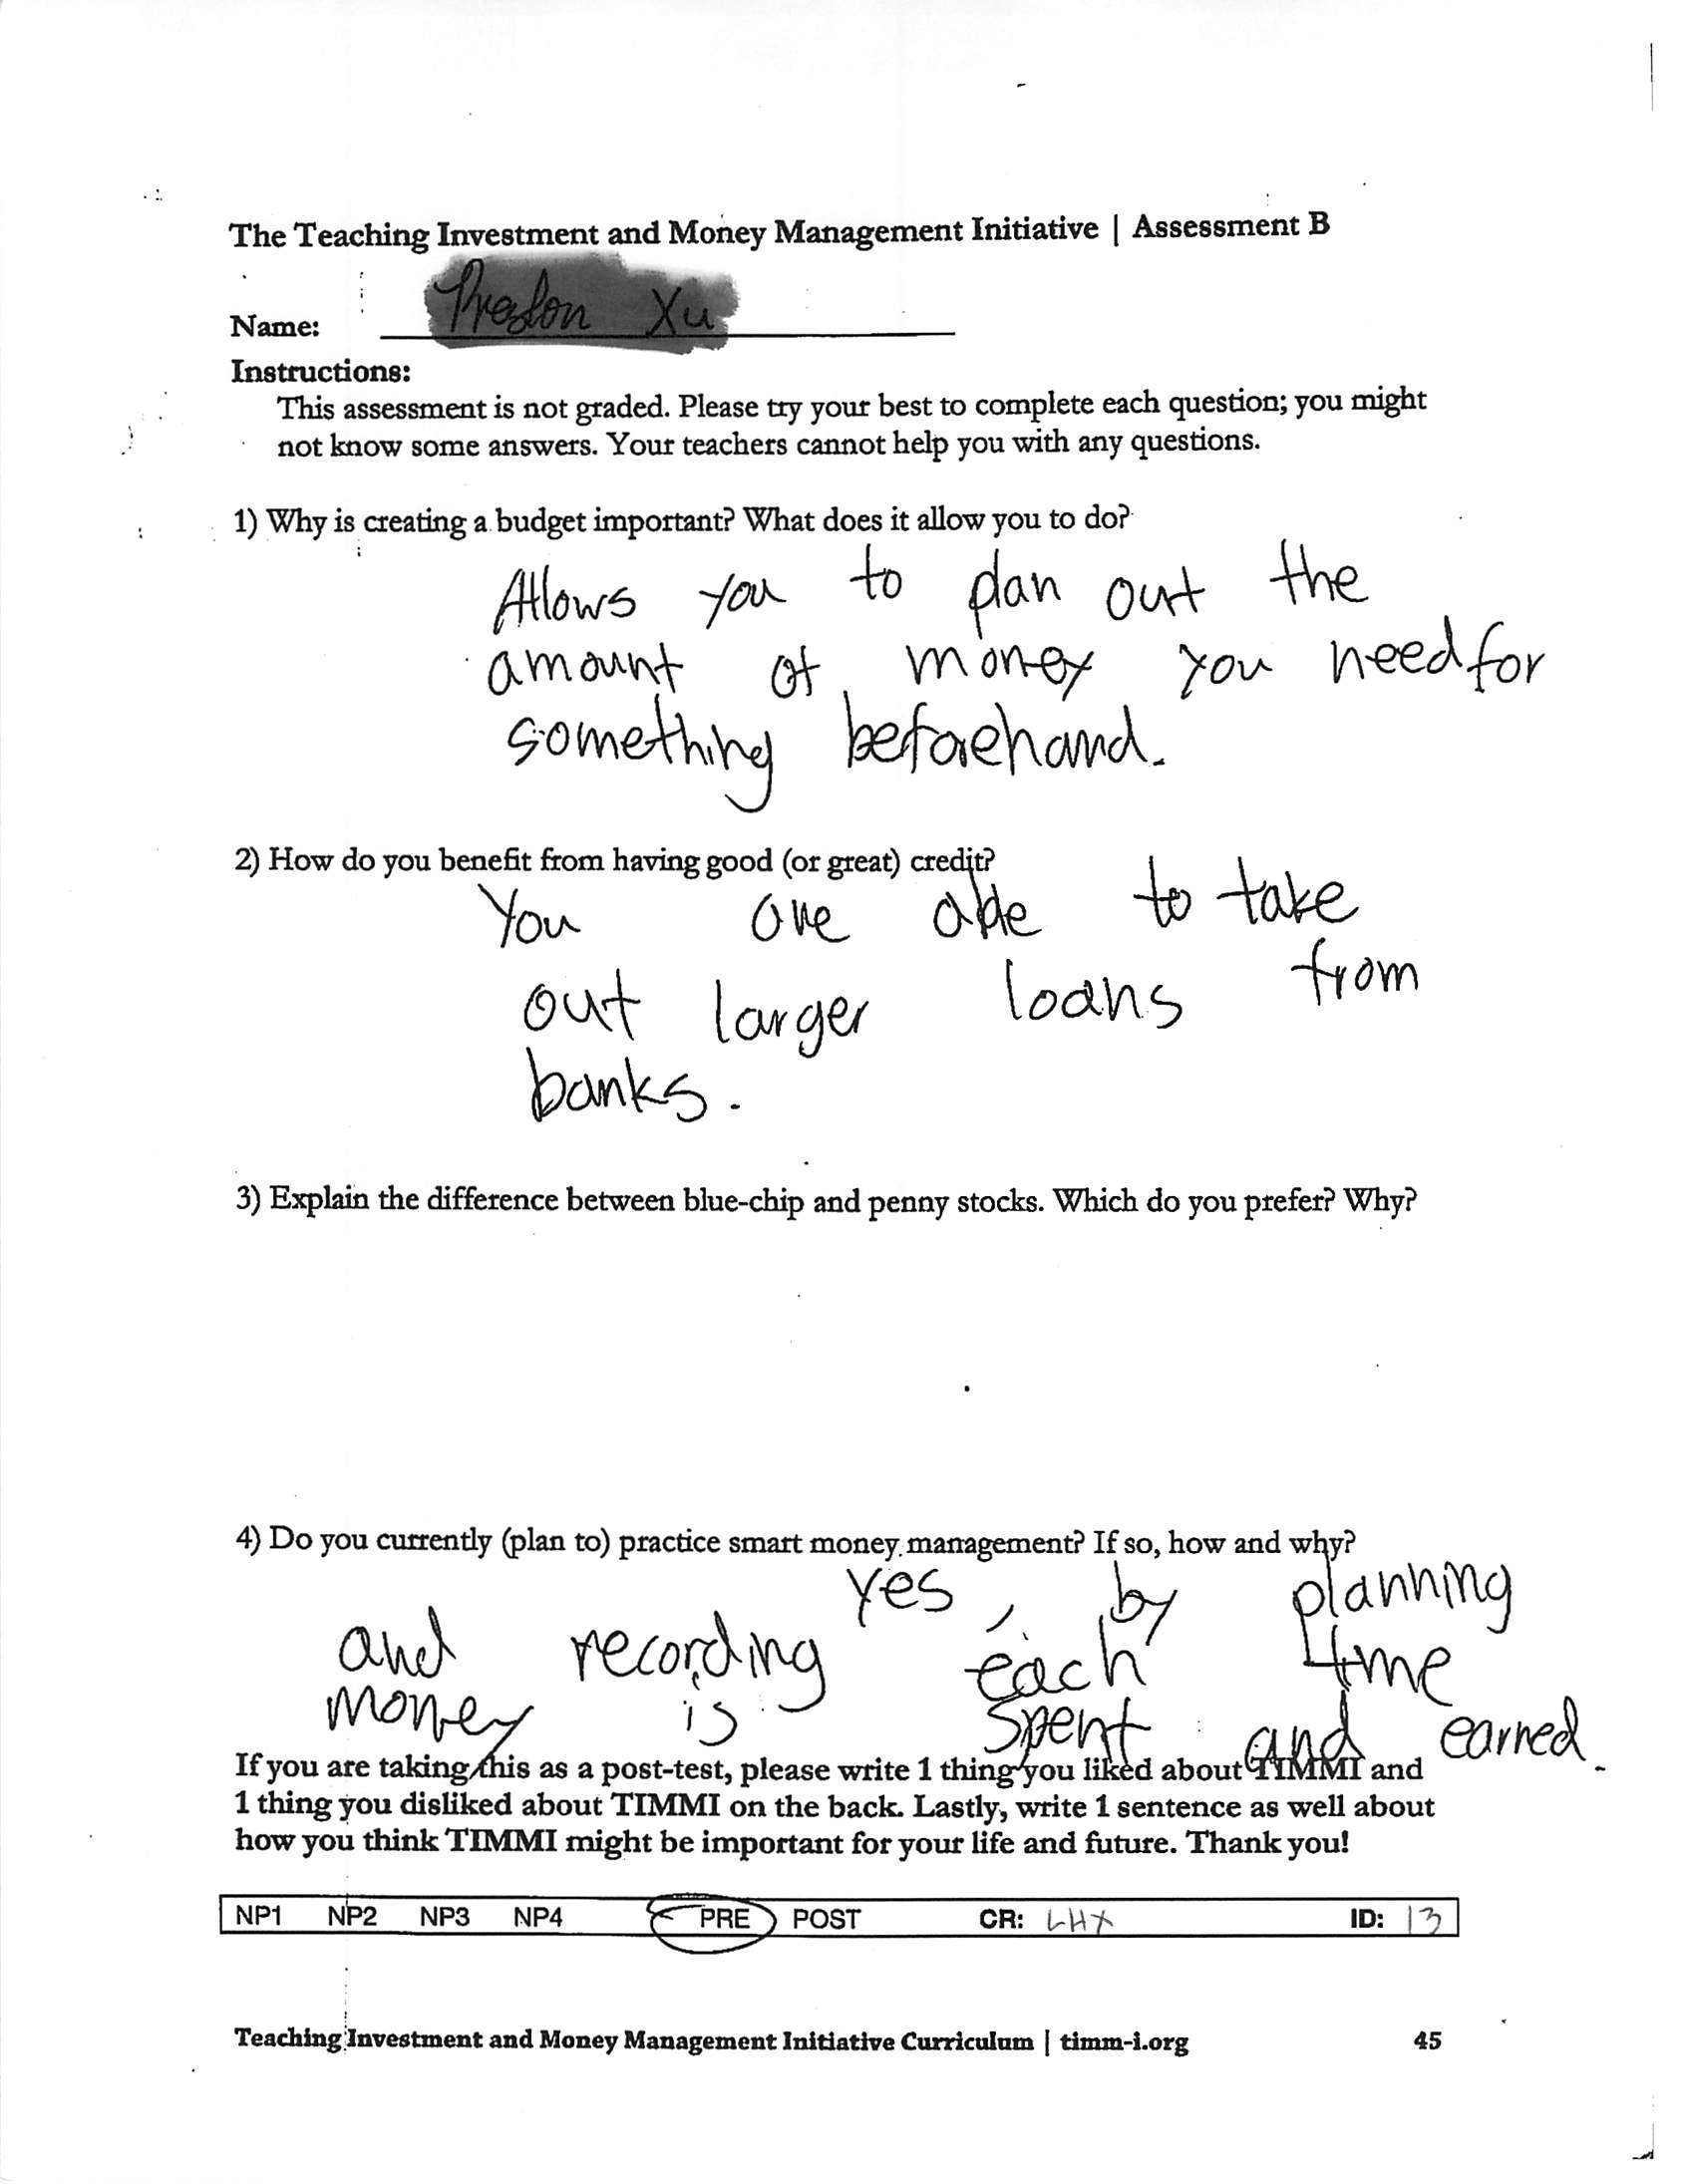 The Teaching Investment and Money Management Initiative | Assessment B
Name: Preston Xu
Instructions:
This assessment is not graded. Please try your best to complete each question; you might
not know some answers. Your teachers cannot help you with any questions.
1) Why is creating a budget important? What does it allow you to do?
Allows you to plan out the
amount of money you need for
something beforehand.
2) How do you benefit from having good (or great) credit?
You are able to take
out larger loans from
banks.
3) Explain the difference between blue-chip and penny stocks. Which do you prefer? Why?
4) Do you currently (plan to) practice smart money management? If so, how and why?
yes, by planning
and recording each time
money is spent and earned.
If you are taking this as a post-test, please write 1 thing you liked about TIMMI and
1 thing you disliked about TIMMI on the back. Lastly, write 1 sentence as well about
how you think TIMMI might be important for your life and future. Thank you!
NP1 NP2 NP3 NP4 PRE POST CR: LHX ID: 13
Teaching Investment and Money Management Initiative Curriculum | timm-i.org 45